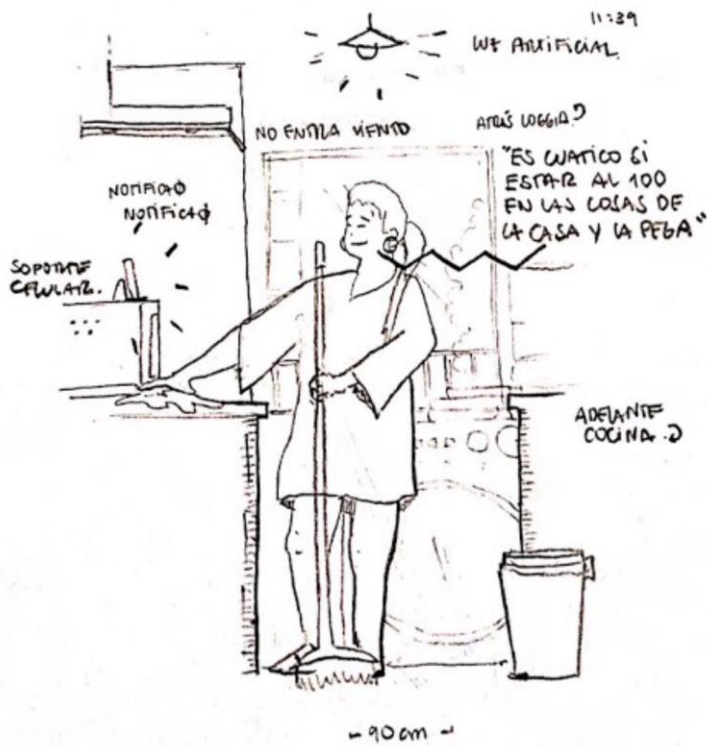 11:39
LUZ ARTIFICIAL
NO ENTRA VIENTO
ATRÁS LOGGIA
"ES CUATICO SI
ESTAR AL 100
EN LAS COSAS DE
LA CASA Y LA PEGA"
NOTIFICAØ
NOTIFICAØ
SOPORTE
CELULAR.
ADELANTE
COCINA.
90 cm